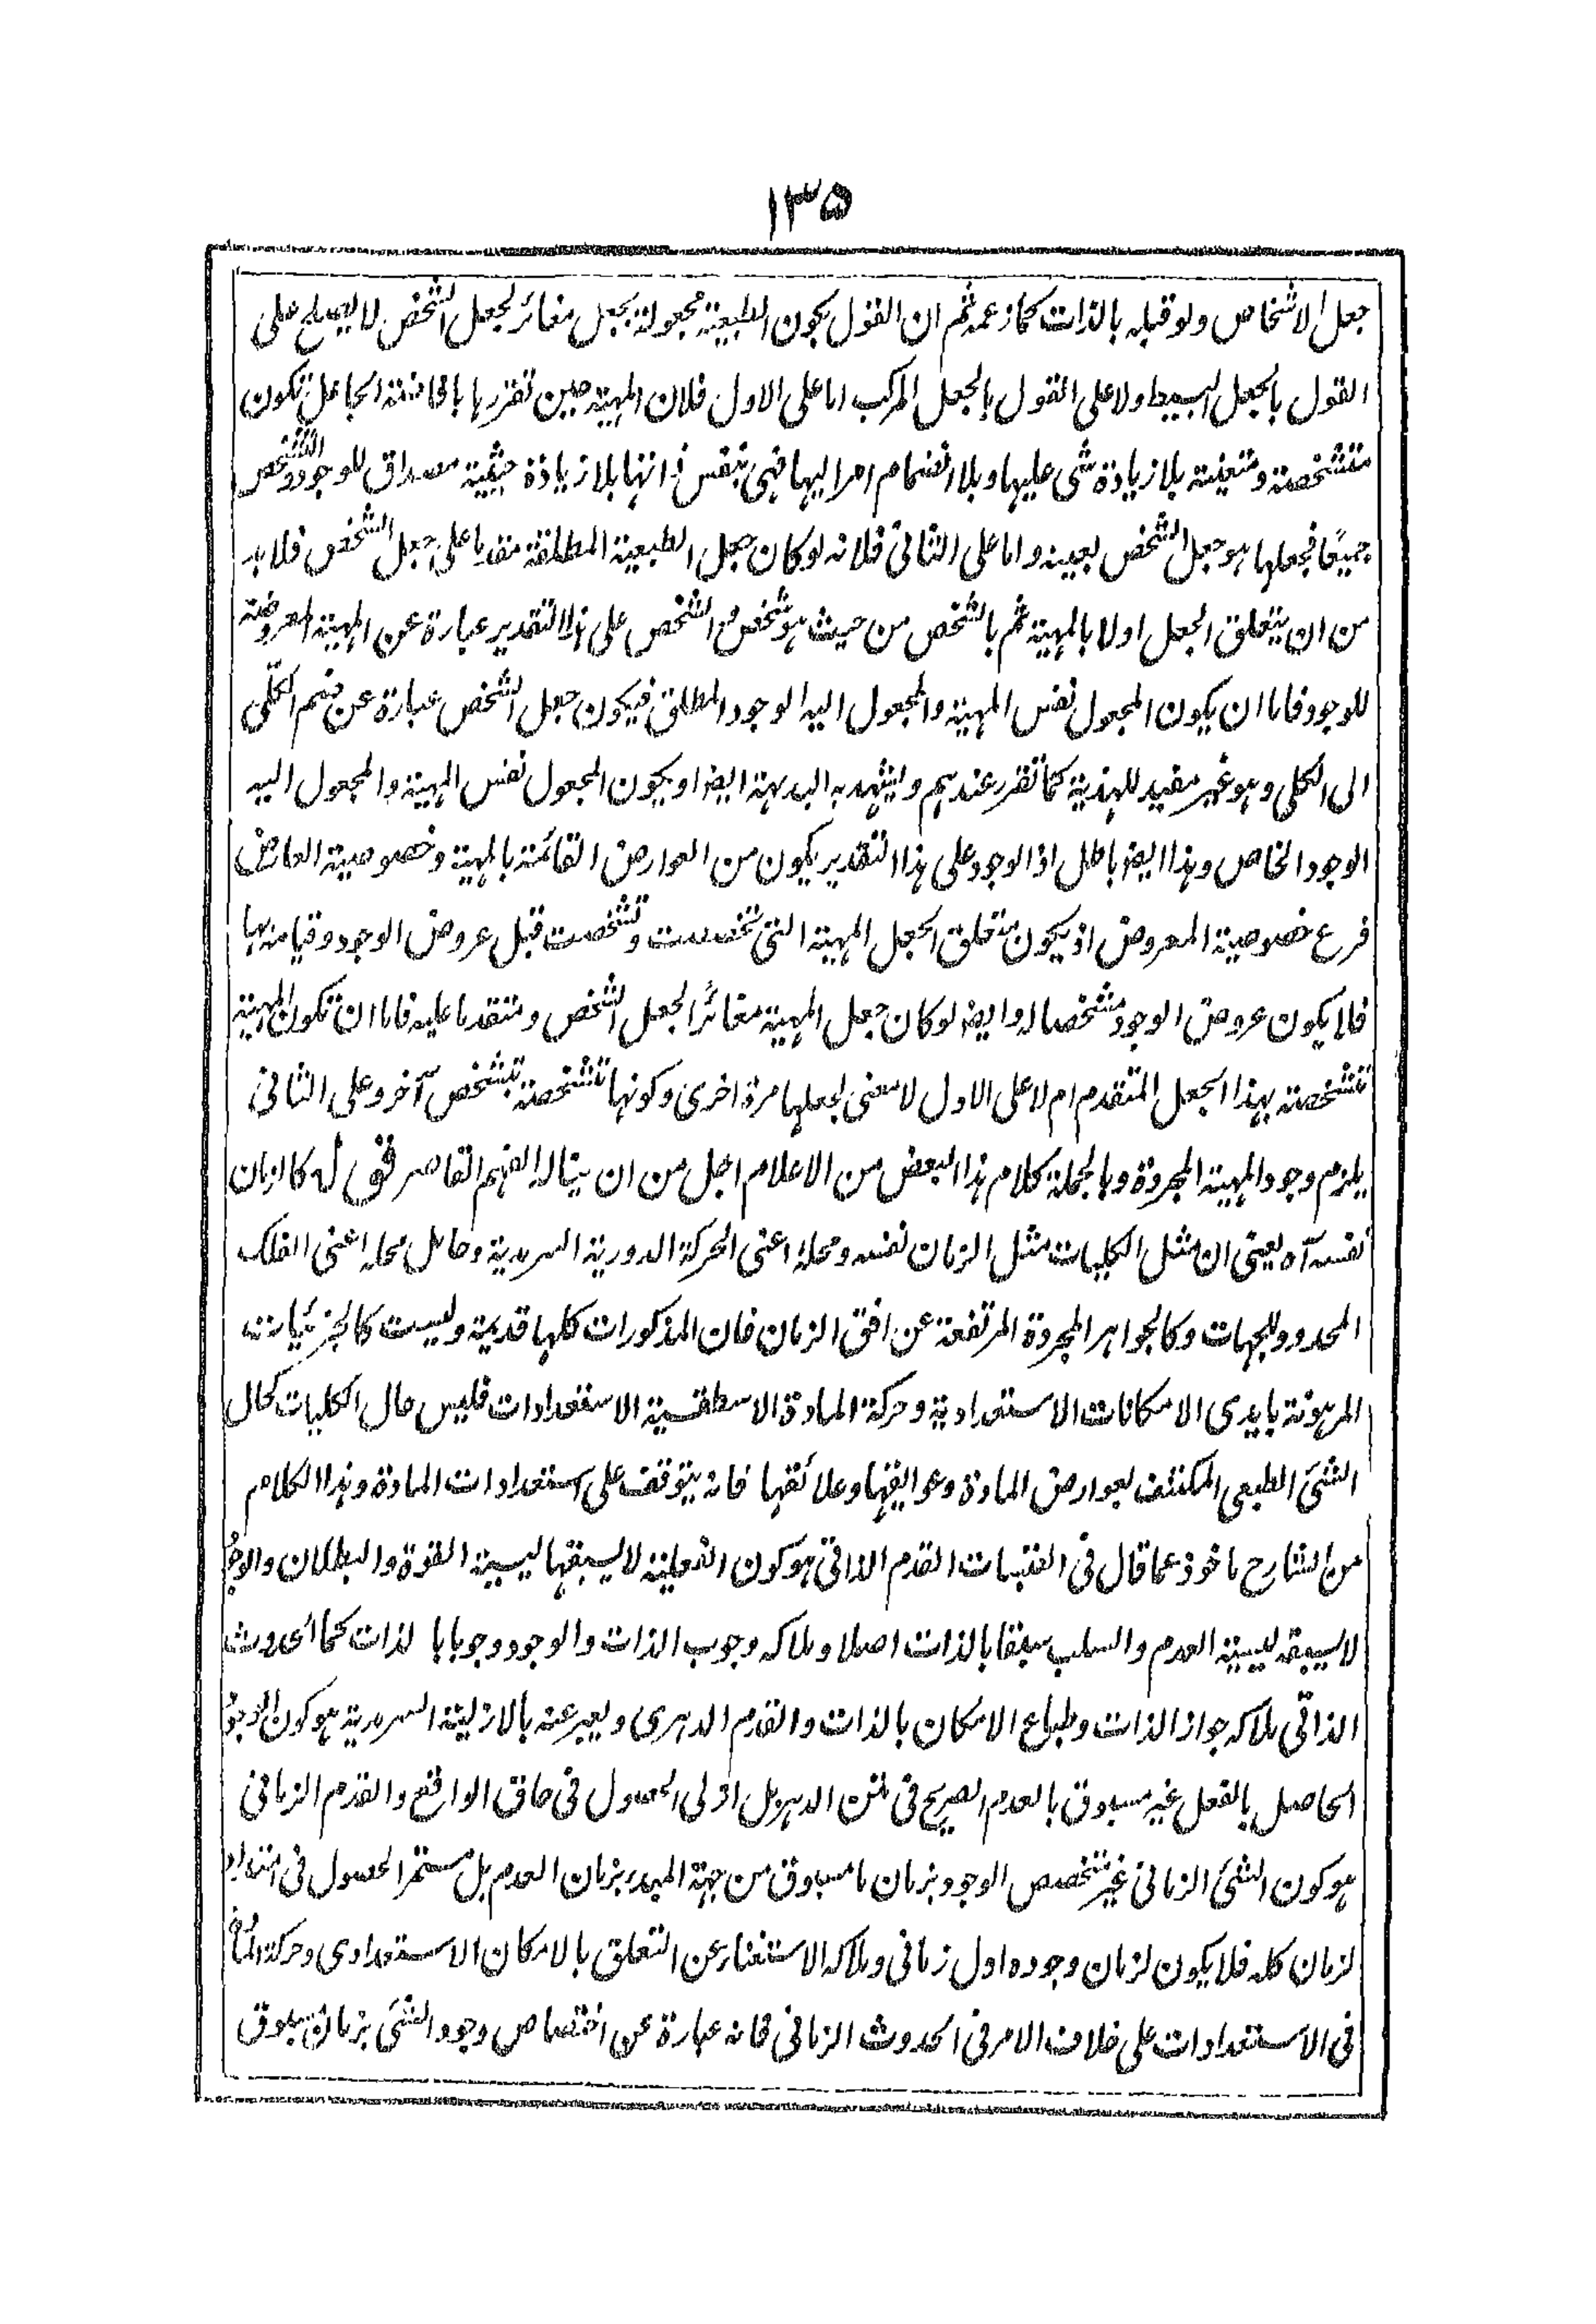 ١٣٥
جعل الاشخاص ولو قبله بالذات كما زعمه ثم ان القول بكون الطبعية مجعولة بجعل مغائر لجعل الشخص لا يصلح على
القول بالجعل البسيط ولا على القول بالجعل المركب اما على الاول فلان المهية حين تقررها بافاضته الجاعل تكون
متشخصة ومتعينة بلا زيادة شى عليها وبلا انضمام امر اليها فهى بنفس ذاتها بلا زيادة حيثية مصداق للوجود والتشخص
جميعًا فجعلها هو جعل الشخص بعينه واما على الثانى فلانه لو كان جعل الطبعية المطلقة مقدما على جعل الشخص فلا بد
من ان يتعلق الجعل اولا بالمهية ثم بالشخص من حيث هو شخص فالشخص على هذا التقدير عبارة عن المهية المعروضة
للوجود فاما ان يكون المجعول نفس المهية والمجعول اليه الوجود المطلق فيكون جعل الشخص عبارة عن ضم الكلّى
الى الكلى وهو غير مفيد للهذية كما تقرر عندهم ويشهد به البديهة ايضا او يكون المجعول نفس المهية والمجعول اليه
الوجود الخاص وهذا ايضا باطل اذ الوجود على هذا التقدير يكون من العوارض القائمة بالمهية وخصوصية العارض
فرع خصوصية المعروض اذ يكون متعلق الجعل المهية التى تخصصت وتشخصت قبل عروض الوجود وقيامه بها
فلا يكون عروض الوجود مشخصا له وايضا لو كان جعل المهية مغائرًا لجعل الشخص ومتقدما عليه فاما ان تكون المهية
متشخصة بهذا الجعل المتقدم ام لا على الاول لا معنى لجعلها مرة اخرى وكونها متشخصة بتشخص آخر وعلى الثانى
يلزم وجود المهية المجردة وبالجملة كلام هذا البعض من الاعلام اجل من ان يناله الفهم القاصر قوله كالزمان
نفسه آه يعنى ان مثل الكليات مثل الزمان نفسه ومحله اعنى الحركة الدورية السرمدية وحامل محله اعنى الفلك
المحدد للجهات وكالجواهر المجردة المرتفعة عن افق الزمان فان المذكورات كلها قديمة وليست كالجزئيات
المرهونة بايدى الامكانات الاستعدادية وحركة المادة الاسطقسية الاستعدادات فليس حال الكليات كحال
الشئ الطبعى المكتنف بعوارض المادة وعوائقها وعلائقها فانه يتوقف على استعدادات المادة وهذا الكلام
من الشارح ماخوذ عما قال فى القبسات القدم الذاتى هو كون الفعلية لا يسبقها ليسية القوة والبطلان والوجود
لا يسبقه ليسية العدم والسلب سبقا بالذات اصلا وملاكه وجوب الذات والوجود وجوبا بالذات كما الحدوث
الذاتى ملاكه جواز الذات وطباع الامكان بالذات والقدم الدهرى ويعبر عنه بالازلية السرمدية هو كون الوجود
الحاصل بالفعل غير مسبوق بالعدم الصريح فى متن الدهر بل ازلى الحصول فى حاق الواقع والقدم الزمانى
هو كون الشئ الزمانى غير متخصص الوجود بزمان ما مسبوق من جهة المبدء بزمان العدم بل مستمر الحصول فى امتداد
لزمان كله فلا يكون لزمان وجوده اول زمانى وملاكه الاستغناء عن التعلق بالامكان الاستعدادى وحركة المادة
فى الاستعدادات على خلاف الامر فى الحدوث الزمانى فانه عبارة عن اختصاص وجود الشئ بزمان مسبوق